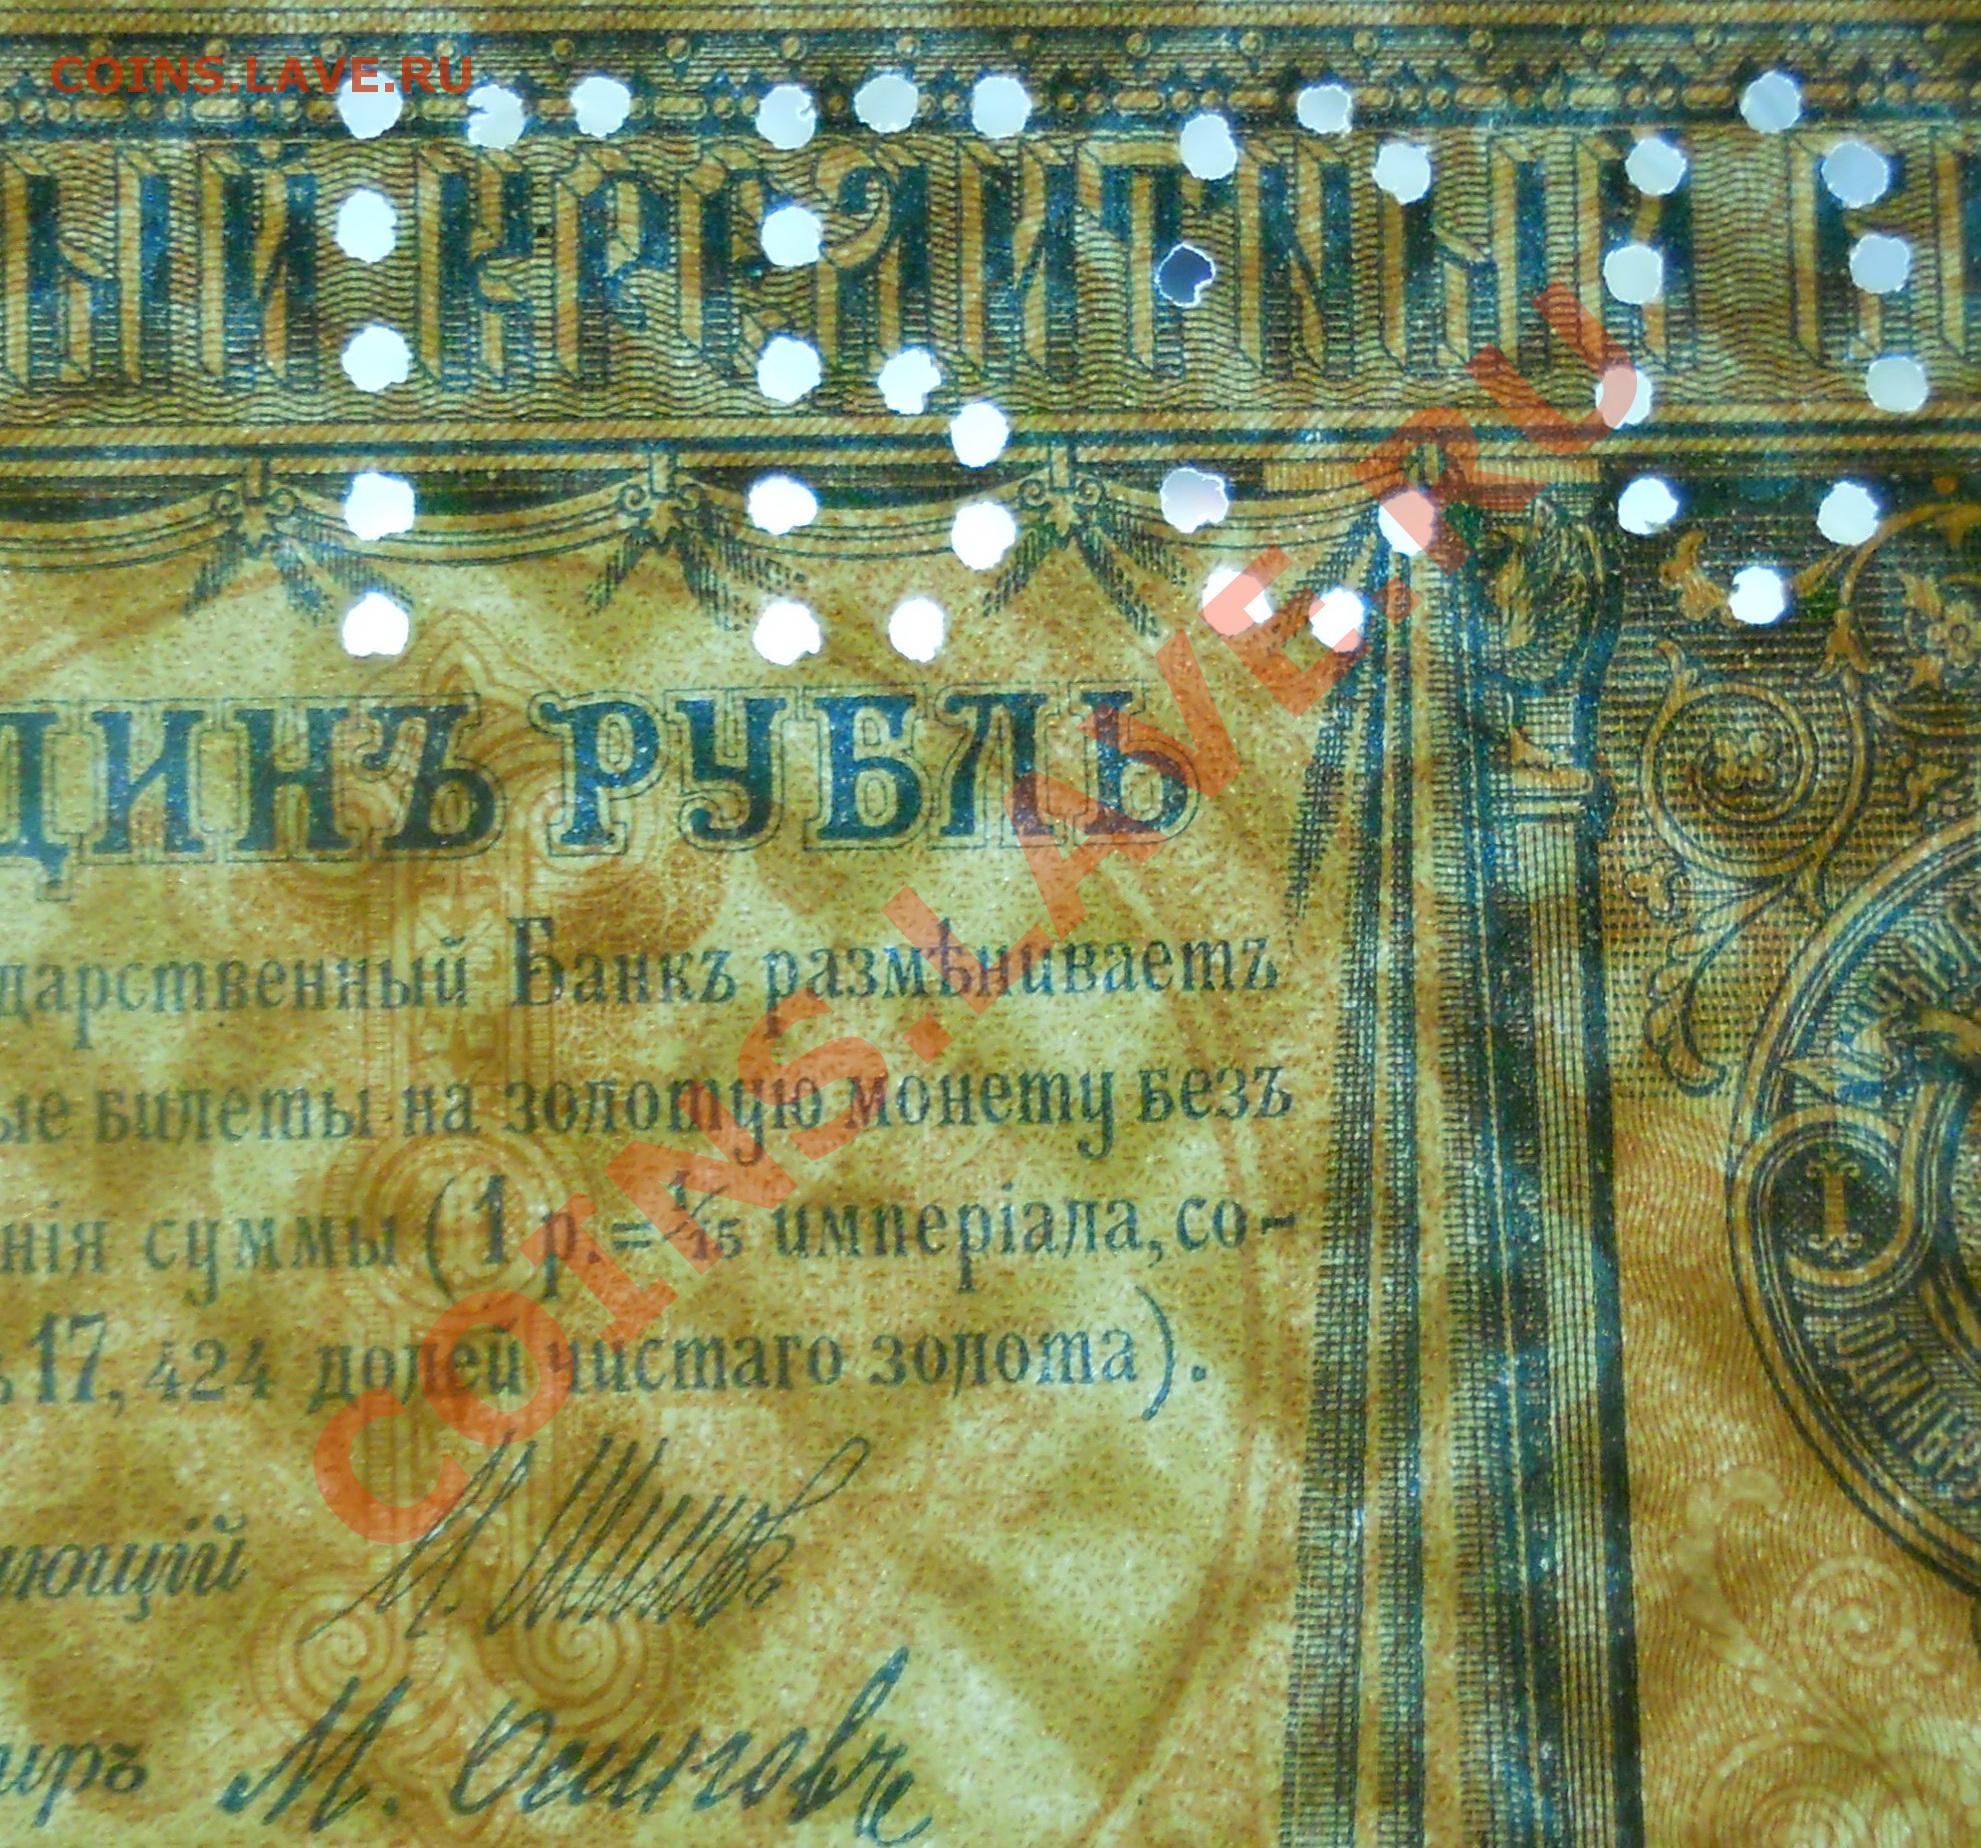 COINS.LAVE.RU
ГБСО
ЫЙ КРЕДИТНЫЙ Б
ДИНЪ РУБЛЬ
дарственный Банкъ размѣниваетъ
ые билеты на золотую монету безъ
нія суммы (1 р. = 1/15 имперіала, со-
17, 424 долей чистаго золота).
яющій И. Шиповъ
иръ М. Осиповъ
1
COINS.LAVE.RU